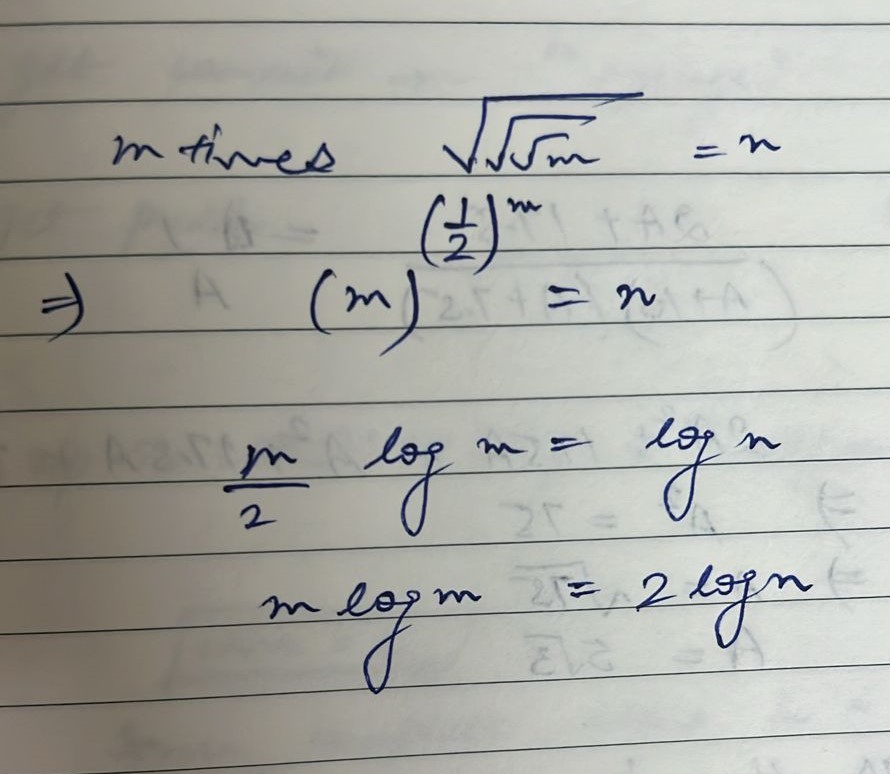 m times √√√m = n
⇒ (m)^(1/2)^m = n
m/2 log m = log n
m log m = 2 log n